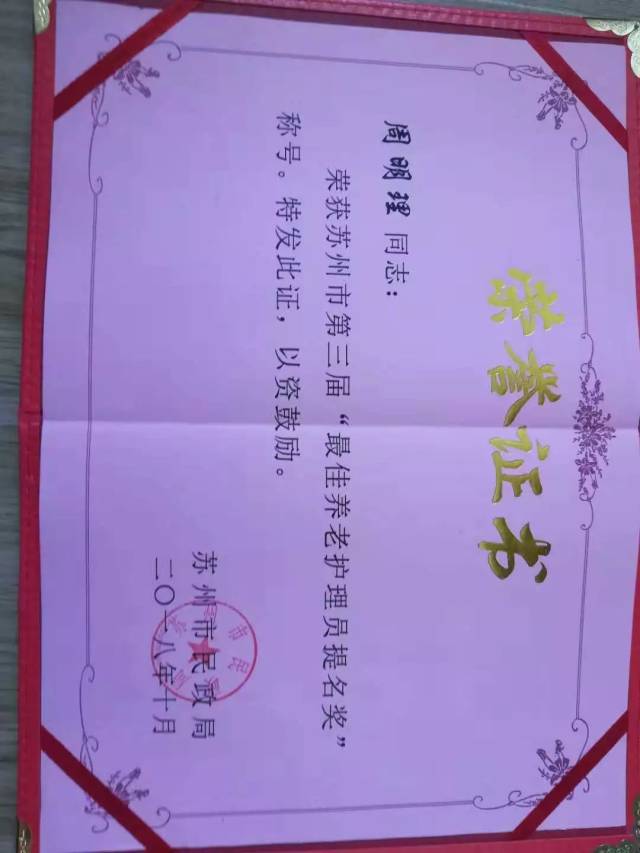 荣誉证书
周明理 同志：
荣获苏州市第三届“最佳养老护理员提名奖”
称号。特发此证，以资鼓励。
苏州市民政局
二〇一八年十月